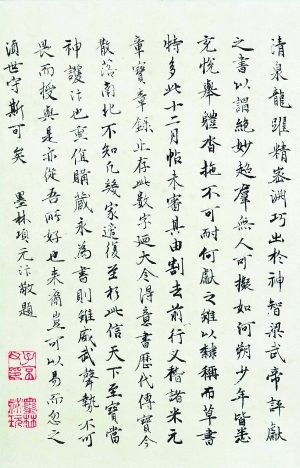 清泉龍躍精密淵巧出於神智梁武帝評獻
之書以謂絕妙超群無人可擬如河朔少年皆悉
充悅舉體沓拖不可耐何獻之雖以隸稱而草書
特多此十二月帖未審其由割去前行又稽諸米元
章寶章錄止存此數字迺大令得意書歷代傳寶今
散落南北不知幾家追復至於此信天下至寶當
神護汴也重值購藏永為書則雖威武聲勢不可
畏而授與是亦從吾所好也來裔豈可以易而忽之
須世守斯可矣 墨林項元汴敬題
子京父印
墨林秘玩